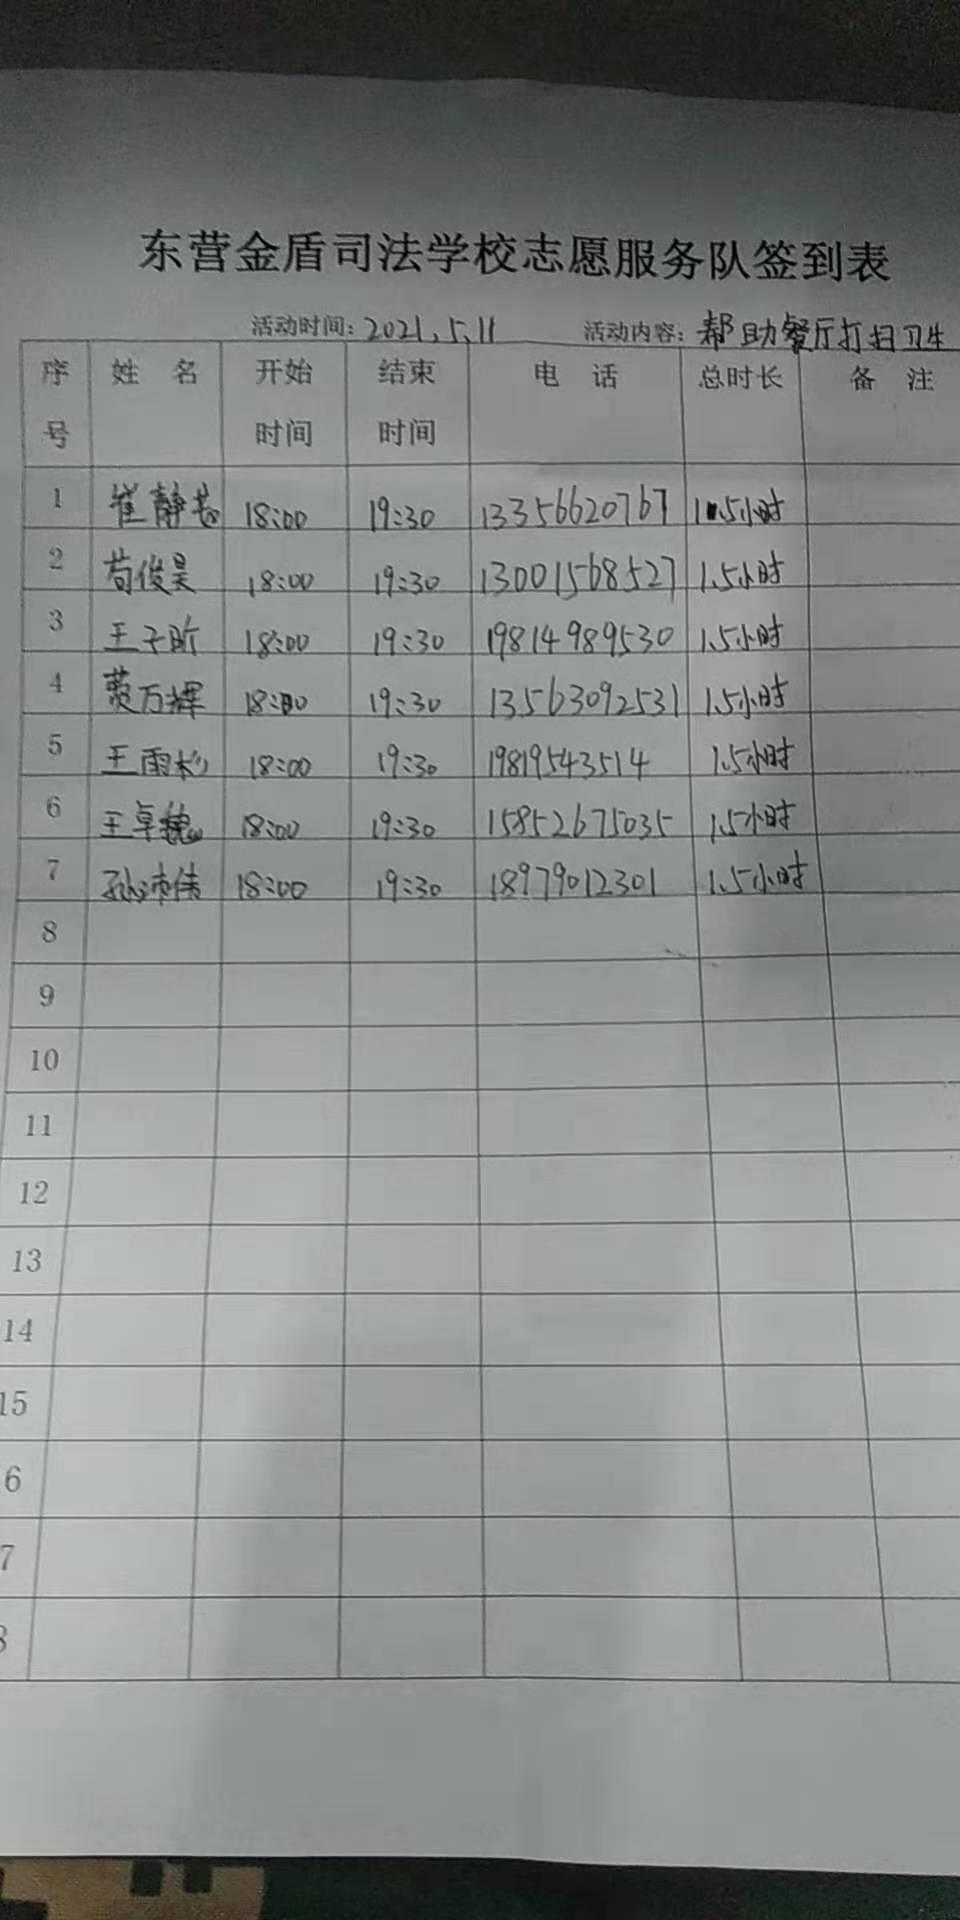 东营金盾司法学校志愿服务队签到表
活动时间: 2021.5.11 活动内容: 帮助餐厅打扫卫生
序号 姓 名 开始时间 结束时间 电 话 总时长 备 注
1 崔静 18:00 19:30 13356620767 1.5小时
2 苟俊昊 18:00 19:30 13001568527 1.5小时
3 王子昕 18:00 19:30 19814989530 1.5小时
4 万辉 18:00 19:30 13563092531 1.5小时
5 王雨杉 18:00 19:30 19819543514 1.5小时
6 王卓巍 18:00 19:30 15852675035 1.5小时
7 孙沛伟 18:00 19:30 18979012301 1.5小时
8
9
10
11
12
13
14
15
6
7
8